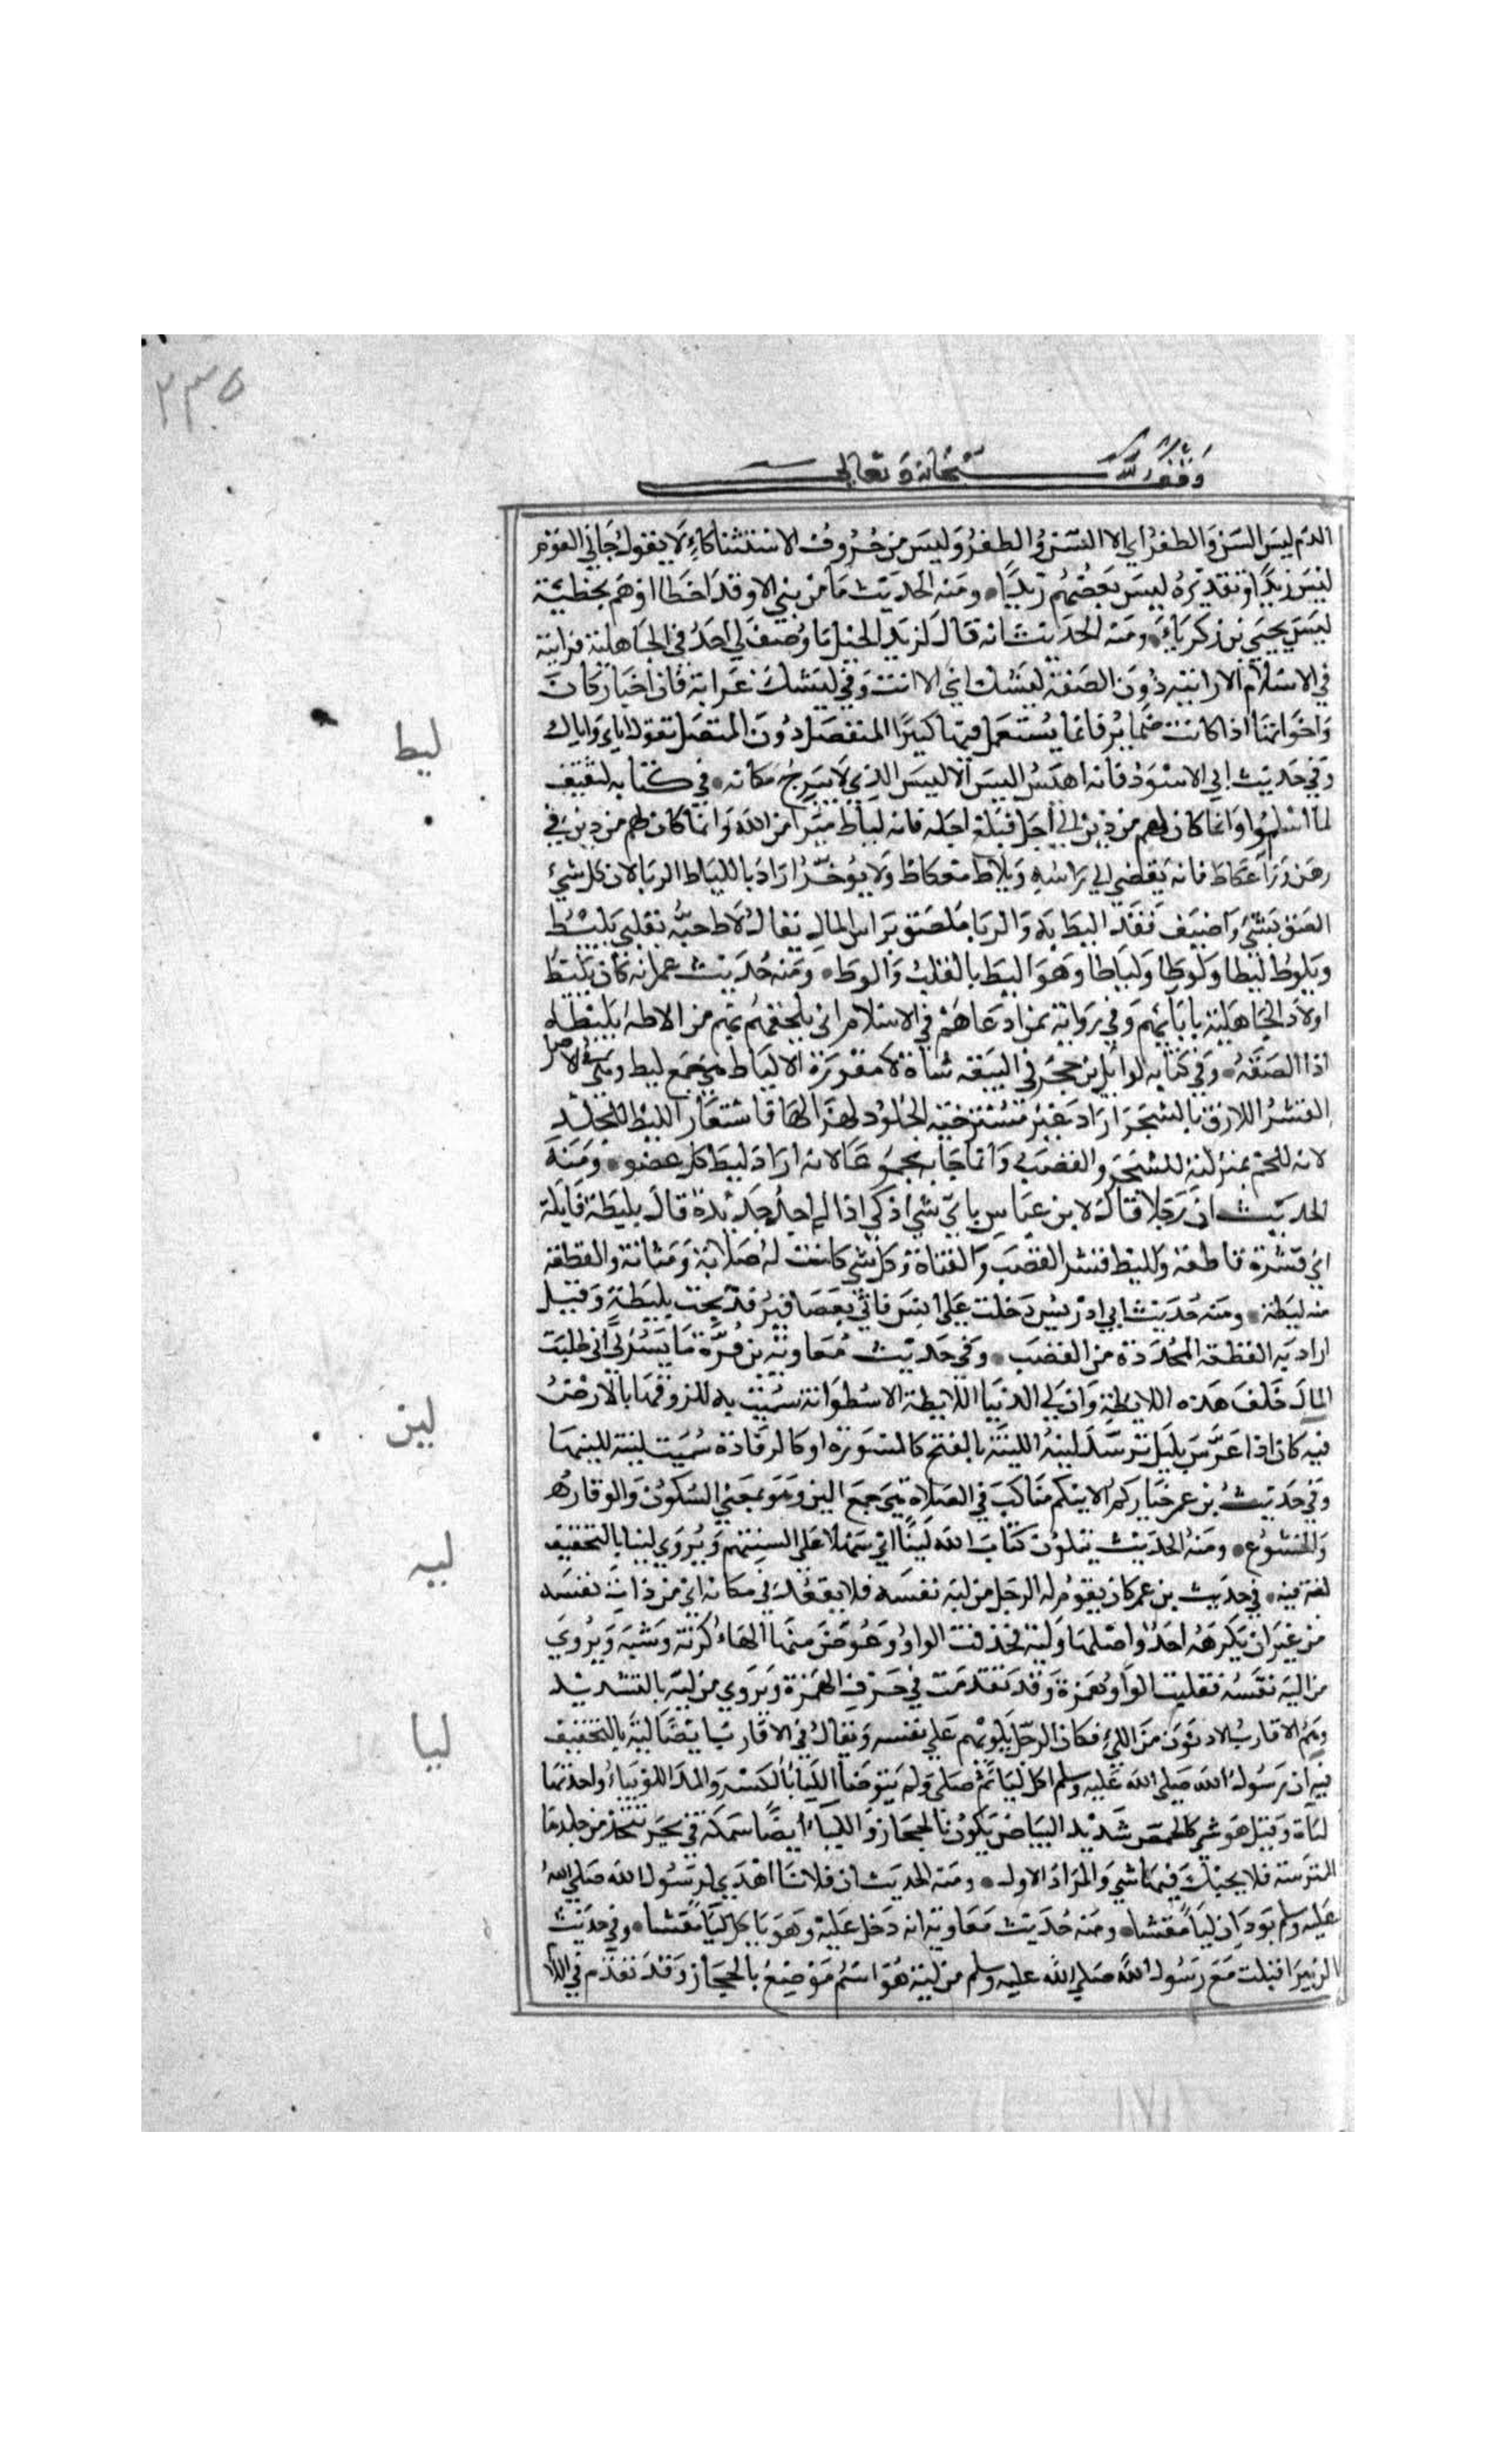 ٢٣٥
وقف لله سبحانه وتعالى
الدم ليس السن والظفر اي الا السن والظفر وليس من حروف الاستثنا كالا يقول جاني القوم
ليس زيدا وتقديره ليس بعضهم زيدا ومنه الحديث ما من نبي الا وقد اخطا او هم بخطيئة
ليس يحيى بن زكرياء ومنه الحديث انه قال لزيد الخيل ما وصف لي احد في الجاهلية فرايته
في الاسلام الا رايته دون الصفة ليسك اي الا انت وفي ليسك غرابة فان اخبار كان
واخواتها اذا كانت ضماير فانما يستعمل فيها كثيرا المنفصل دون المتصل تقول اياي واياك
وفي حديث ابي الاسود فانه اهيس اليس الاليس الذي لا يبرح مكانه في كتابه لثقيف
ليط
لما اسلموا وانما كان لهم من دين الي اجل فبلغ اجله فانه لياط مبرا من الله وانما كان لهم من دين في
رهن وراء عكاظ فانه يقضي الي راسه ويلاط بعكاظ ولا يوخر اراد باللياط الربا لان كل شيء
الصق بشيء واضيف فقد اليط به والربا ملصق براس المال يقال لاط حبه بقلبي يليط
ويلوط ليطا ولوطا ولياطا وهو اليط بالقلب والوط ومنه حديث عمر انه كان يليط
اولاد الجاهلية بابايهم وفي رواية بمن ادعاهم في الاسلام اي يلحقهم بهم من الاطه يليطه
اذا الصقه وفي كتابه لوايل بن حجر في التيعة شاة لا مقورة الالياط هي جمع ليط وهي في الاصل
القشر اللازق بالشجر اراد غير مسترخية الجلود لهزالها فاستعار الليط للجلد
لانه للحم بمنزلته للشجر والقصب وانما جا به مجموعا لانه اراد ليط كل عضو ومنه
الحديث ان رجلا قال لابن عباس باي شي اذكي اذا لم اجد حديدة قال بليطة فالية
اي قشرة قاطعة والليط قشر القصب والقناة وكل شي كانت له صلابة ومتانة والقطعة
منه ليطة ومنه حديث ابي ادريس دخلت علي انس فاتي بعصافير فذبحت بليطة وقيل
اراد به القطعة المحددة من القصب وفي حديث معاوية بن قرة ما يسرني اني طلبت
المال خلف هذه اللايطة وان لي الدنيا اللايطة الاسطوانة سميت به للزوقها بالارض
لين
فيه كان اذا عرس بليل توسد لينة اللينة بالفتح كالمسورة او كالرفادة سميت لينة للينها
وفي حديث بن عمر خياركم الاينكم مناكب في الصلاة هي جمع الين وهو بمعني السكون والوقار
والخشوع ومنه الحديث يتلون كتاب الله لينا اي سهلا علي السنتهم ويروي لينا بالتخفيف
ليه
لغة فيه في حديث بن عمر كان يقوم له الرجل من لية نفسه فلا يقعد في مكانه اي من ذات نفسه
من غير ان يكرهه احد واصلها ولية فحذفت الواو وعوض منها الهاء كزنة وشية ويروي
من الية نفسه فقلبت الواو همزة وقد تقدمت في حرف الهمزة ويروي من ليته بالتشديد
وهم الاقارب الادنون من اللي فكان الرجل يلويهم علي نفسه ويقال في الاقارب ايضا لية بالتخفيف
ليا
فيه ان رسول الله صلى الله عليه وسلم اكل لياء ثم صلي ولم يتوضأ اللياء بالكسر والمد اللوبياء واحدتها
لياة وقيل هو شي كالحمص شديد البياض يكون بالحجاز واللياء ايضا سمكة في بحر تتخذ من جلدها
الترسة فلا يحيك فيها شي والمراد الاول ومنه الحديث ان فلانا اهدي لرسول الله صلى الله
عليه وسلم بودان لياء مقشا ومنه حديث معاوية انه دخل عليه وهو ياكل لياء مقشا وفي حديث
الزبير اقبلت مع رسول الله صلى الله عليه وسلم من لية هو اسم موضع بالحجاز وقد تقدم في اللا